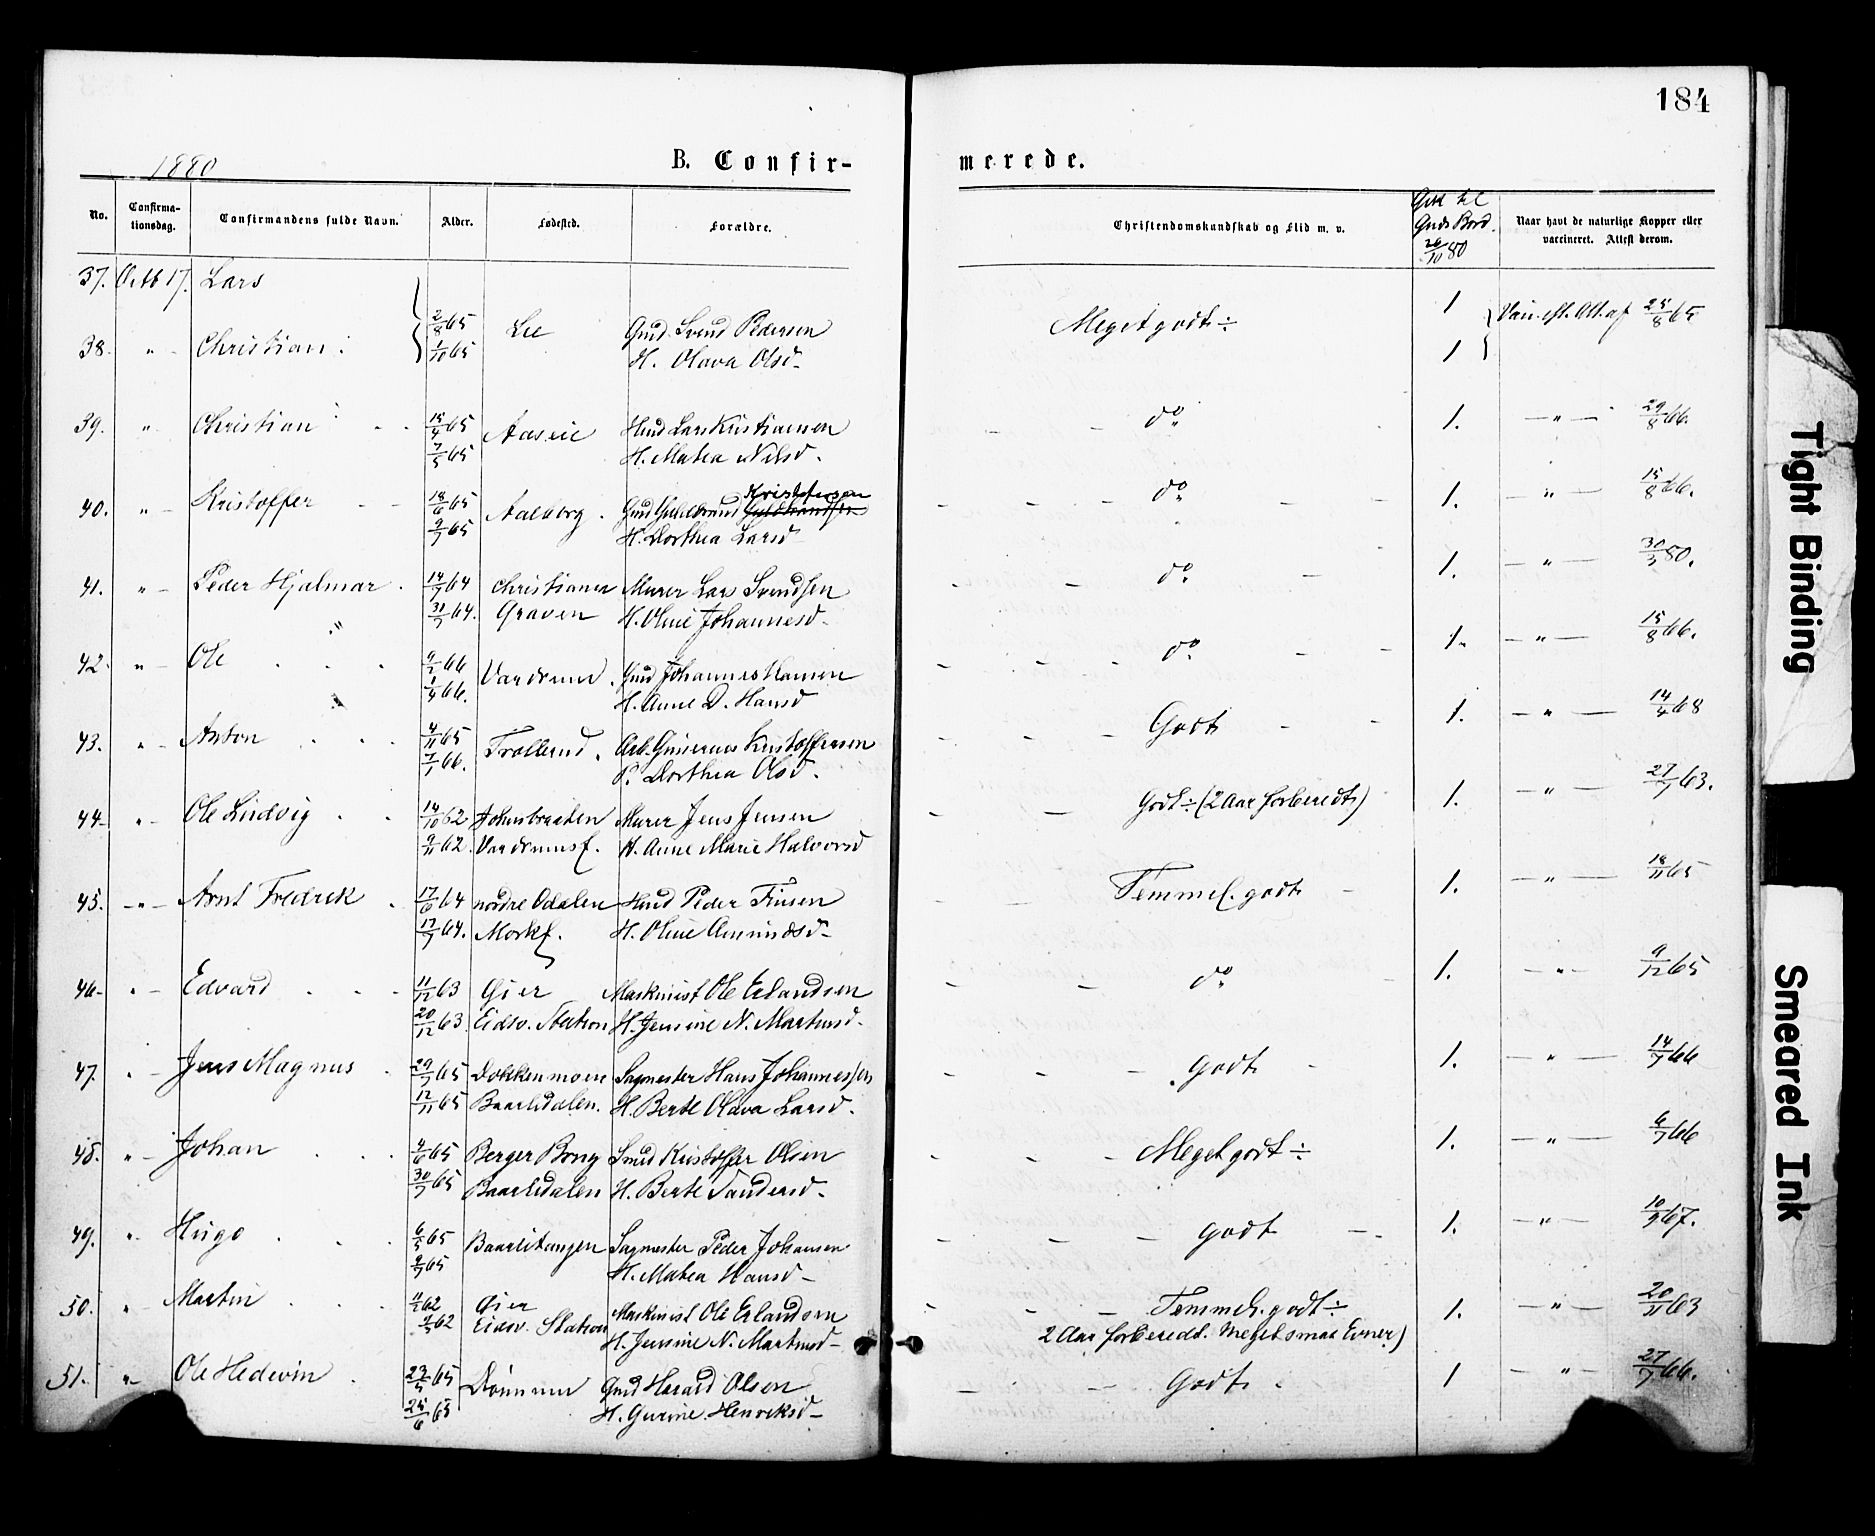 184
1880 B. Confirmerede.
No. Confirmationsdag. Confirmandens fulde Navn. Alder. Fødested. Forældre. Christendomskundskab og Flid m. v. Gik til Guds Bord 26/10 80 Naar havt de naturlige Kopper eller vaccineret. Attest derom.
37. Octb 17. Lars 1
2/8 65 Lie Gmd. Svend Pedersen Meget godt ÷ Att. af 25/8 65
38. " Christian 1/10 65 H. Olava Olsd 1
39. " Christian 15/4 65 Aaseie Hmd Lars Kristiansen do 1. " 29/8 66.
7/5 65 H. Matea Nilsd.
40. " Kristoffer 18/6 65 Aalborg. Gmd Guldbrand Kristofersen do 1. " 15/8 66.
9/7 65 H. Dorthea Larsd
41. " Peder Hjalmar. 14/7 64 Christiania Murer Lars Svendsen do 1. " 30/3 80.
31/7 64. Graven H. Oline Johannesd
42. " Ole 66 Vardemo. Gmd Johannes Hansen do 1. " 15/8 66.
1/4 66. H. Anne D. Hansd
43. " Anton 4/11 65 Trollerud. Arb. Kristoffersen Godt 1. " 14/4 68
7/1 66. P. Dorthea Olsd.
44 " Ole Ludvig 14/10 62 Johnsbraaten Murer Jens Jensen Godt ÷ (2 Aar forberedt) 1. " 27/7 63.
9/11 62. H. Anne Marie Halvorsd
45. " Arnt Fredrik 17/6 64 nordre Odalen Hmd Peder Finsen Temmel. godt 1. " 18/11 65
17/7 64. H. Oline Amundsd
46 " Edvard 11/12 63 Øier Maskinist Ole Erlandsen do 1. " 9/12 65
20/12 63 Eidsv. Station H. Jensine N. Martinsd.
47. " Jens Magnus 29/7 65 Dokkenmoen Sagmester Hans Johannessen godt 1. " 14/7 66
12/11 65 Baarlidalen. H. Berte Olava Larsd.
48. " Johan 4/6 65 Berger Brug Smed Kristoffer Olsen Meget godt ÷ 1. " 6/7 66
30/7 65 Baarlidalen H. Berte Sandersd.
49. " Hugo 6/5 65 Baarlitangen Sagmester Peder Johansen godt 1. " 10/9 67.
9/7 65 H. Matea Hansd
50. " Martin 62 Øier Maskinist Ole Erlandsen Temmel. godt ÷ 1. " 20/11 63
62 Eidsv. Station H. Jensine N. Martinsd 2 Aar forberedt. Meget smaa Evner)
51. " Ole Hedevin 23/5 65 Gmd Harald Olsen Godt 1 " 27/7 66.
25/6 65 H. Gurine Henriksd
Tight Binding
Smeared Ink